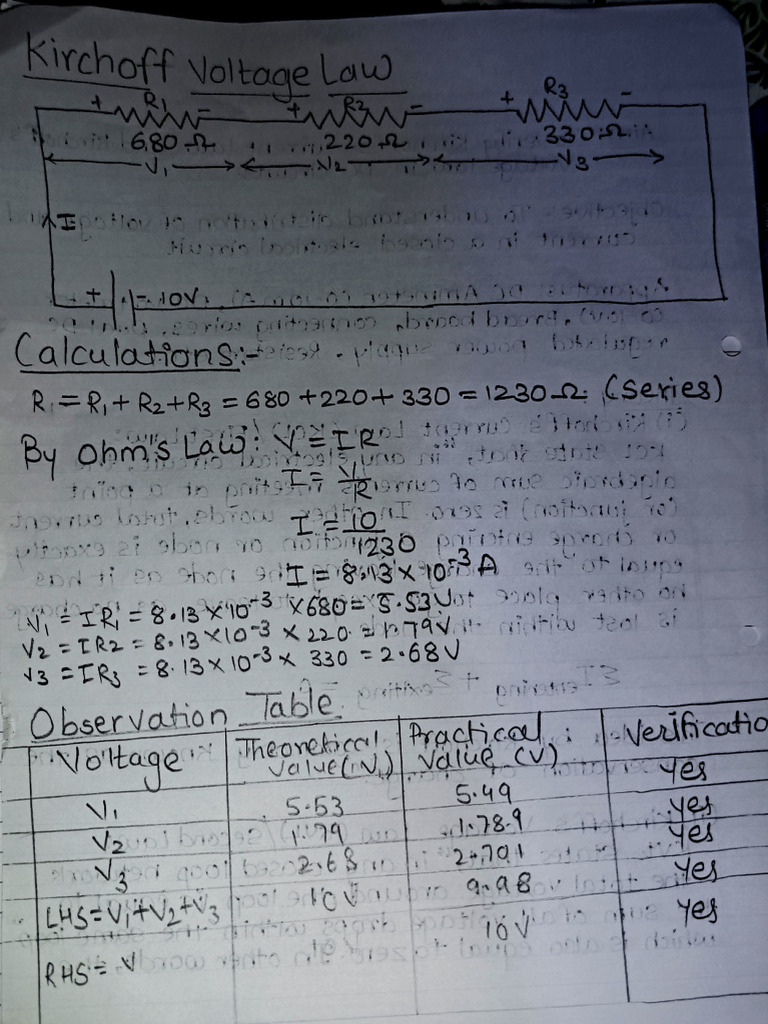 Kirchoff Voltage Law
+ R1 - + R2 - + R3 -
680 Ω 220 Ω 330 Ω
V1 V2 V3
I
+ - 10V
Calculations:-
R = R1 + R2 + R3 = 680 + 220 + 330 = 1230 Ω (Series)
By Ohm's Law: V = IR
I = V/R
I = 10/1230
I = 8.13 × 10⁻³ A
V1 = IR1 = 8.13 × 10⁻³ × 680 = 5.53V
V2 = IR2 = 8.13 × 10⁻³ × 220 = 1.79V
V3 = IR3 = 8.13 × 10⁻³ × 330 = 2.68V
Observation Table
Voltage Theoretical Value (V) Practical Value (V) Verificatio
V1 5.53 5.49 yes
V2 1.79 1.789 yes
V3 2.68 2.701 yes
LHS = V1 + V2 + V3 10V 9.98 yes
RHS = V 10V yes